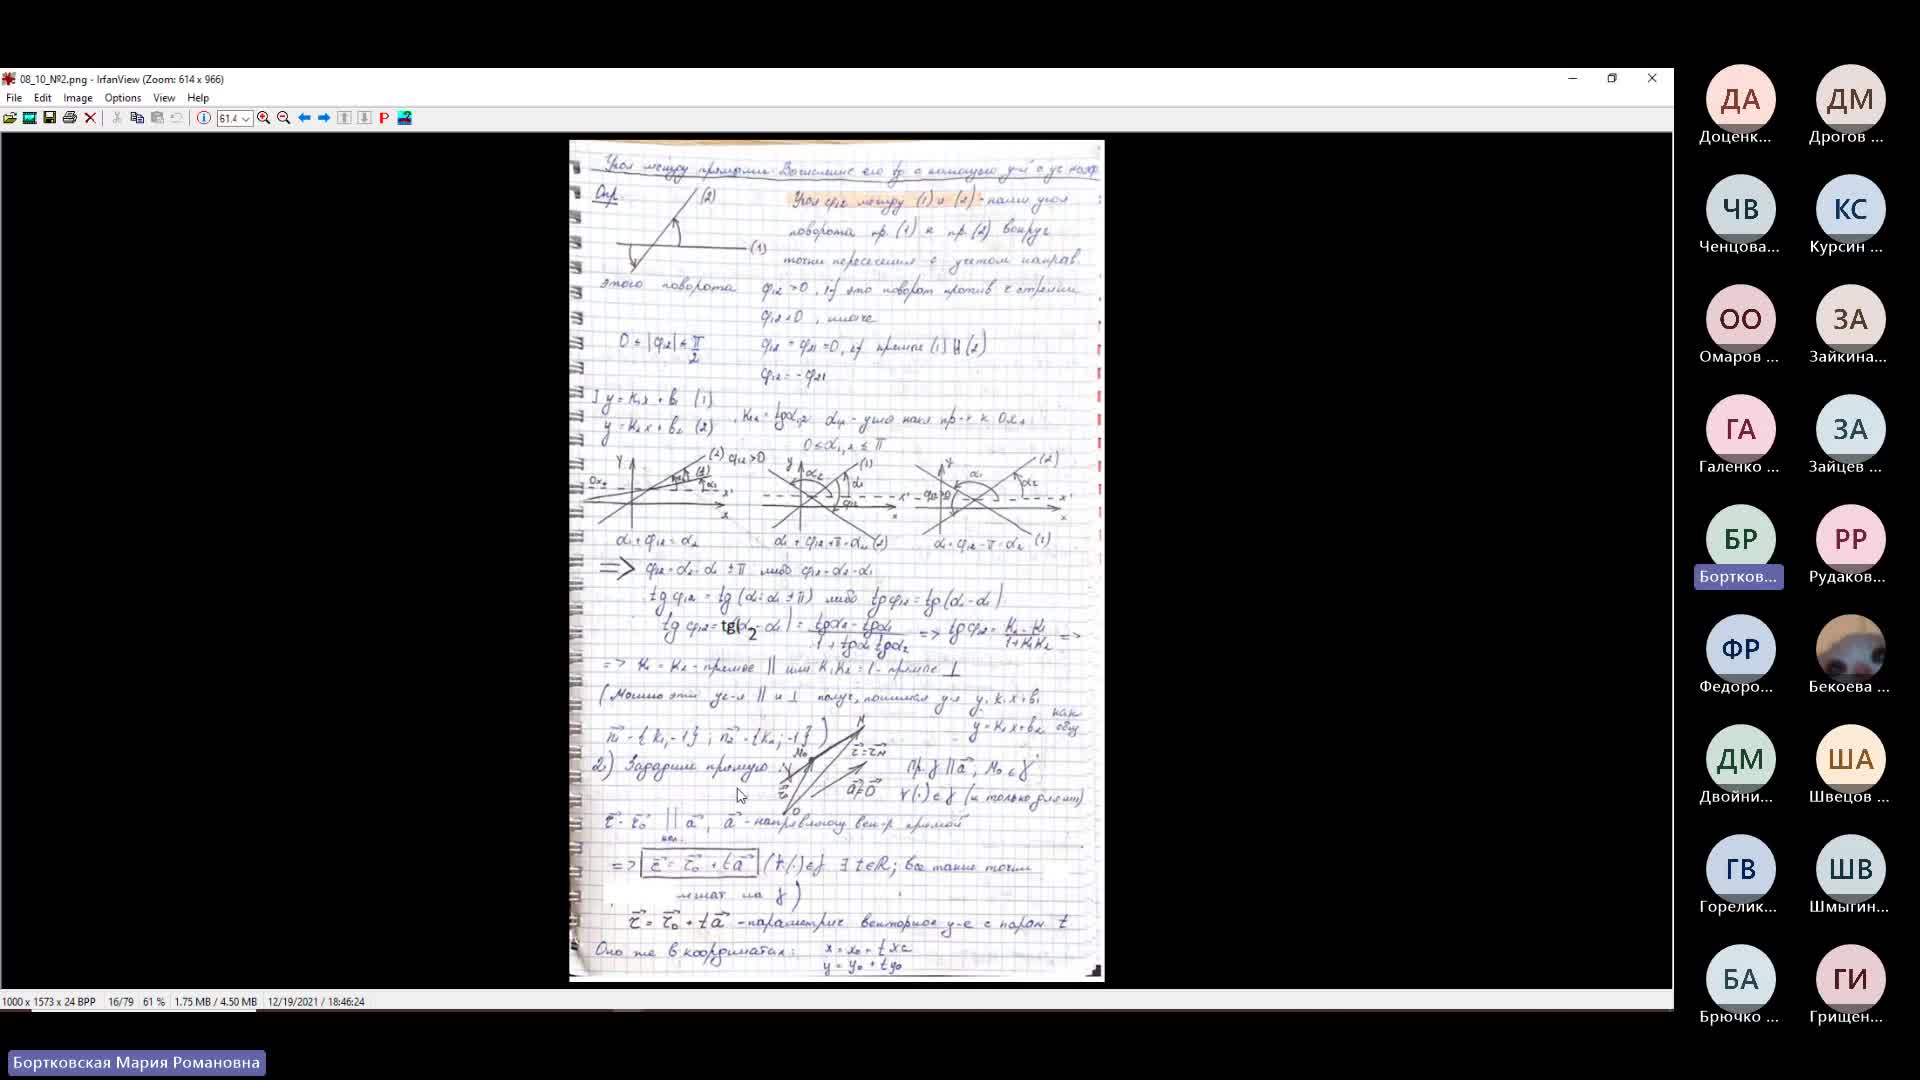 08_10_№2.png - IrfanView (Zoom: 614 x 966)
File Edit Image Options View Help
61.4
Угол между прямыми. Вычисление его tg с помощью
Опр.
(2)
(1)
Угол φ12 между (1) и (2) - наим угол
поворота пр. (1) к пр. (2) вокруг
точки пересечения с учетом направ.
этого поворота φ12 > 0, if это поворот против ч стрелки
φ12 < 0, иначе
0 ≤ |φ12| ≤ π/2
φ12 = φ21 = 0, if прямые (1) || (2)
φ12 = - φ21
] y = k1x + b1 (1)
y = k2x + b2 (2)
k1,2 = tgα1,2 α1,2 - угла накл пр-х к Ox
0 ≤ α1,2 ≤ π
(2) φ12 > 0
α1 + φ12 = α2
α1 + φ12 + π = α2 (2)
α1 + φ12 - π = α2 (1)
=> φ12 = α2 - α1 ± π либо φ12 = α2 - α1
tg φ12 = tg (α2 - α1 ± π) либо tg φ12 = tg (α2 - α1)
tg φ12 = tg(α2 - α1) = tgα2 - tgα1 / 1 + tgα1 tgα2 => tg φ12 = k2 - k1 / 1 + k1k2 =>
=> k1 = k2 - прямые || или k1k2 = 1 - прямые ⊥
(Можно эти ус-я || и ⊥ получ, понимая у-я y = k1x + b1
y = k2x + b2 как общ
n1 = {k1, -1}; n2 = {k2; -1})
2) Зададим прямую:
M0
r = rM
a ≠ 0
O
пр γ || a, M0 ∈ γ
∀(.) ∈ γ (и только для них)
r - r0 || a, a - направляющ век-р прямой
кол.
=> r = r0 + ta (∀(.) ∈ γ ∃ t ∈ R; все такие точки
лежат на γ)
r = r0 + ta - параметрич векторное у-е с парам t
Оно же в координатах: x = x0 + t
y = y0 + t
1000 x 1573 x 24 BPP 16/79 61 % 1.75 MB / 4.50 MB 12/19/2021 / 18:46:24
Бортковская Мария Романовна
ДА ДМ
Доценк... Дрогов ...
ЧВ КС
Ченцова... Курсин ...
ОО ЗА
Омаров ... Зайкина...
ГА ЗА
Галенко ... Зайцев ...
БР РР
Бортков... Рудаков...
ФР
Федоро... Бекоева ...
ДМ ША
Двойни... Швецов ...
ГВ ШВ
Горелик... Шмыгин...
БА ГИ
Брючко ... Грищен...